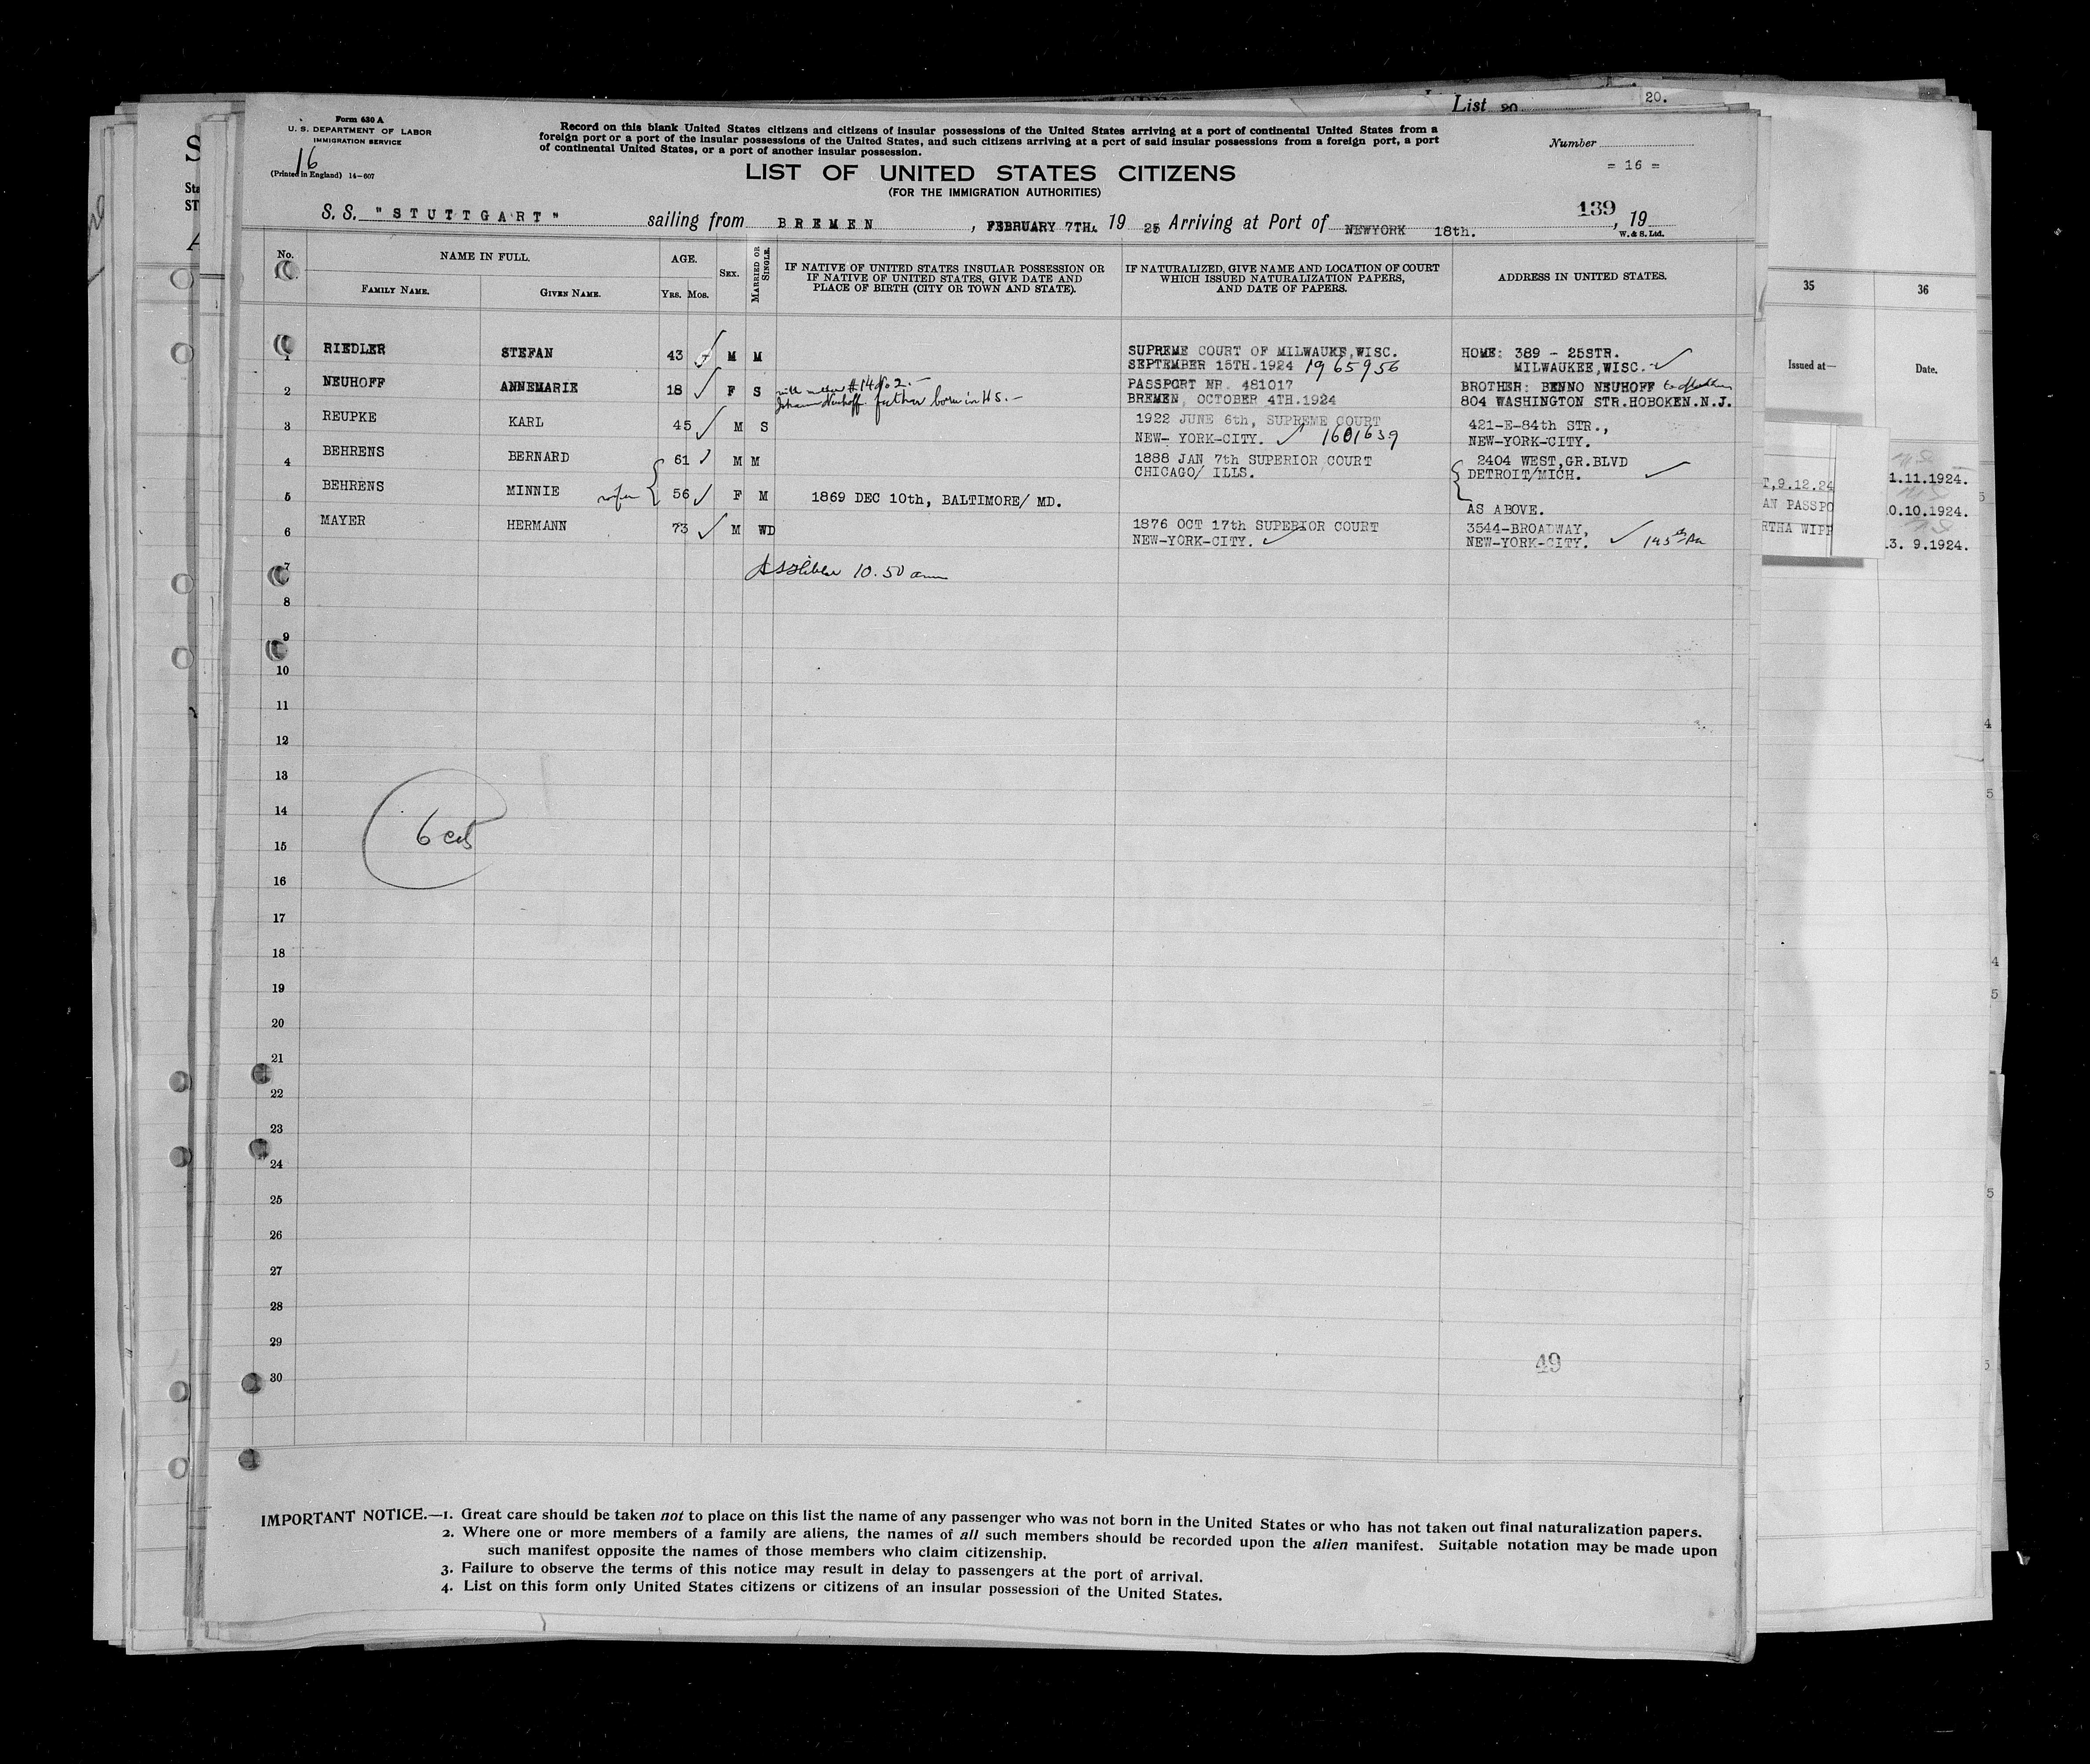 List 20.
20.
Form 630 A
U. S. DEPARTMENT OF LABOR
IMMIGRATION SERVICE
16
(Printed in England) 14-607
Record on this blank United States citizens and citizens of insular possessions of the United States arriving at a port of continental United States from a
foreign port or a port of the insular possessions of the United States, and such citizens arriving at a port of said insular possessions from a foreign port, a port
of continental United States, or a port of another insular possession.
Number
= 16 =
LIST OF UNITED STATES CITIZENS
(FOR THE IMMIGRATION AUTHORITIES)
139
S. S. "STUTTGART" sailing from BREMEN, FEBRUARY 7TH. 19 25 Arriving at Port of NEWYORK 18th. , 19
W. & S. Ltd.
No.
NAME IN FULL.
FAMILY NAME.
GIVEN NAME.
AGE.
YRS. MOS.
SEX.
MARRIED OR SINGLE.
IF NATIVE OF UNITED STATES INSULAR POSSESSION OR
IF NATIVE OF UNITED STATES, GIVE DATE AND
PLACE OF BIRTH (CITY OR TOWN AND STATE).
IF NATURALIZED, GIVE NAME AND LOCATION OF COURT
WHICH ISSUED NATURALIZATION PAPERS,
AND DATE OF PAPERS.
ADDRESS IN UNITED STATES.
1 RIEDLER STEFAN 43 M M SUPREME COURT OF MILWAUKE,WISC. HOME: 389 - 25STR.
SEPTEMBER 15TH.1924 1965956 MILWAUKEE,WISC.
2 NEUHOFF ANNEMARIE 18 F S with mother #14 No 2. - PASSPORT NR. 481017 BROTHER: BENNO NEUHOFF
Johann Neuhoff father born in U S. - BREMEN, OCTOBER 4TH.1924 804 WASHINGTON STR.HOBOKEN.N.J.
3 REUPKE KARL 45 M S 1922 JUNE 6th, SUPREME COURT 421-E-84th STR.,
NEW- YORK-CITY. 1601639 NEW-YORK-CITY.
4 BEHRENS BERNARD 61 M M 1888 JAN 7th SUPERIOR COURT 2404 WEST,GR.BLVD
CHICAGO/ ILLS. DETROIT/MICH.
5 BEHRENS MINNIE wife 56 F M 1869 DEC 10th, BALTIMORE/ MD. AS ABOVE.
6 MAYER HERMANN 73 M WD 1876 OCT 17th SUPERIOR COURT 3544-BROADWAY,
NEW-YORK-CITY. NEW-YORK-CITY.
10.50 am
7
8
9
10
11
12
13
14
15
16
17
18
19
20
21
22
23
24
25
26
27
28
29
30
49
IMPORTANT NOTICE.—1. Great care should be taken not to place on this list the name of any passenger who was not born in the United States or who has not taken out final naturalization papers.
2. Where one or more members of a family are aliens, the names of all such members should be recorded upon the alien manifest. Suitable notation may be made upon
such manifest opposite the names of those members who claim citizenship.
3. Failure to observe the terms of this notice may result in delay to passengers at the port of arrival.
4. List on this form only United States citizens or citizens of an insular possession of the United States.
35
36
Issued at—
Date.
T,9.12.24
AN PASSPO
RTHA WIPP
1.11.1924.
0.10.1924.
3. 9.1924.